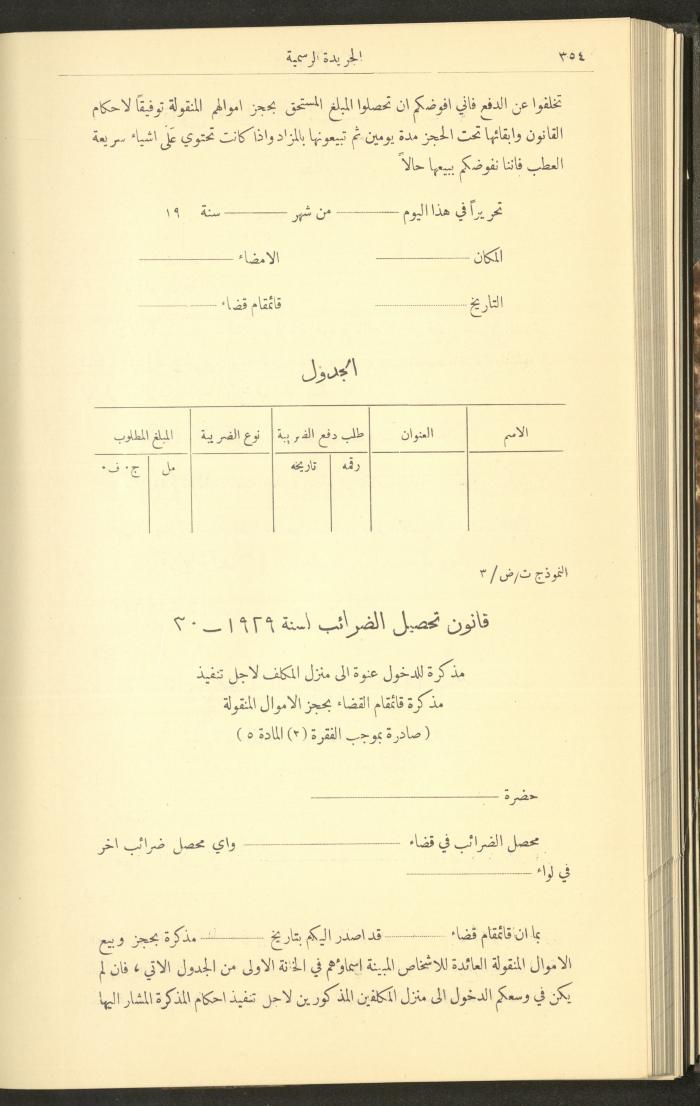 ٣٥٤ الجريدة الرسمية
تخلفوا عن الدفع فاني افوضكم ان تحصلوا المبلغ المستحق بحجز اموالهم المنقولة توفيقاً لاحكام
القانون وابقائها تحت الحجز مدة يومين ثم تبيعونها بالمزاد واذا كانت تحتوي عَلَى اشياء سريعة
العطب فاننا نفوضكم ببيعها حالاً
تحريراً في هذا اليوم ــــــــ من شهر ــــــــ سنة ١٩
المكان ــــــــ الامضاء ــــــــ
التاريخ ــــــــ قائمقام قضاء ــــــــ
الجدول
الاسم العنوان طلب دفع الضريبة نوع الضريبة المبلغ المطلوب
رقمه تاريخه مل ج٠ ف٠
النموذج ت/ض/ ٣
قانون تحصيل الضرائب لسنة ١٩٢٩ــ٣٠
مذكرة للدخول عنوة الى منزل المكلف لاجل تنفيذ
مذكرة قائمقام القضاء بحجز الاموال المنقولة
( صادرة بموجب الفقرة (٢) المادة ٥ )
حضرة ــــــــ
محصل الضرائب في قضاء ــــــــ واي محصل ضرائب اخر
في لواء ــــــــ
بما ان قائمقام قضاء ــــــــ قد اصدر اليكم بتاريخ ــــــــ مذكرة بحجز وبيع
الاموال المنقولة العائدة للاشخاص المبينة اسماؤهم في الخانة الاولى من الجدول الاتي ، فان لم
يكن في وسعكم الدخول الى منزل المكلفين المذكورين لاجل تنفيذ احكام المذكرة المشار اليها